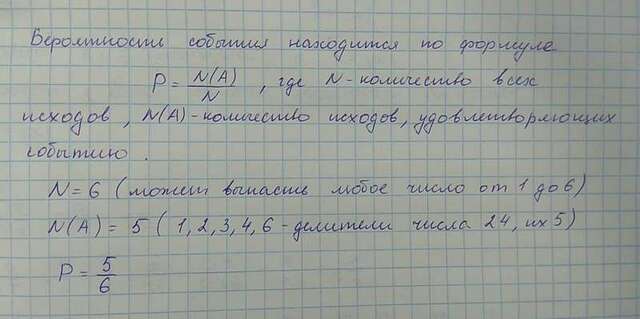 Вероятность события находится по формуле
P = N(A)/N , где N - количество всех
исходов , N(A) - количество исходов, удовлетворяющих
событию .
N = 6 ( может выпасть любое число от 1 до 6)
N(A) = 5 ( 1, 2, 3, 4, 6 - делители числа 24, их 5)
P = 5/6